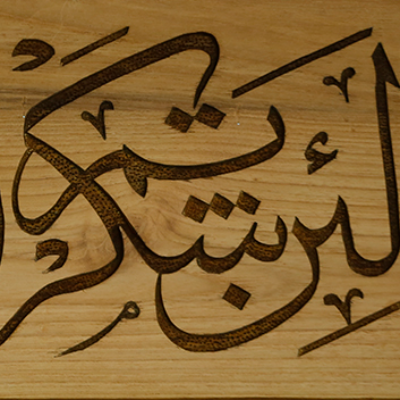 لئن شكرتم